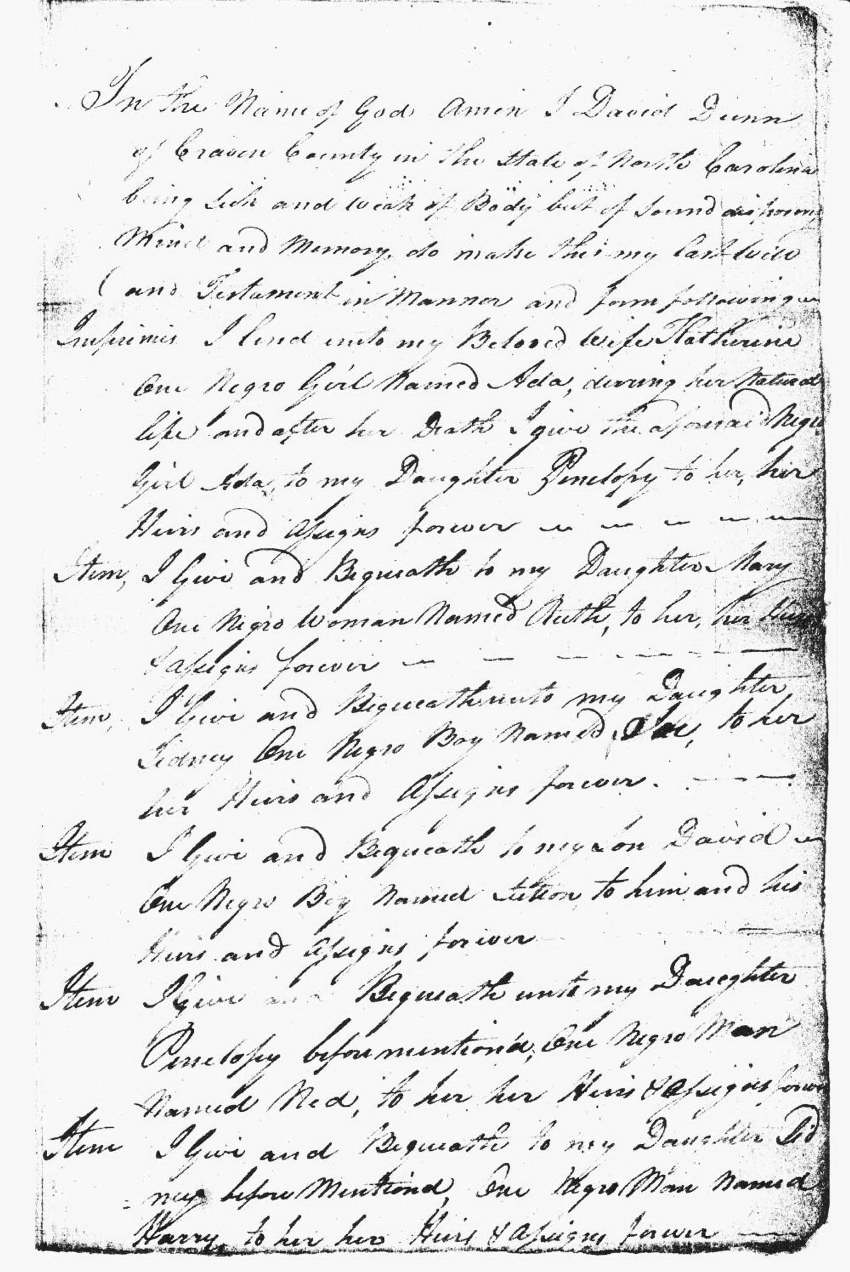 In the Name of God Amen I David Dunn
of Craven County in the State of North Carolina
being Sick and weak of Body but of Sound disposing
Mind and Memory do make this my last will
and Testament in Manner and form following
Imprimis I lend unto my Beloved Wife Katherine
One Negro Girl Named Ada, during her Natural
life and after her Death I give the aforesaid Negro
Girl Ada, to my Daughter Penelopy to her, her
Heirs and Assigns forever
Item, I Give and Bequeath to my Daughter Mary
One Negro Woman Named Ruth, to her, her Heirs
& Assigns forever
Item, I Give and Bequeath unto my Daughter
Sidney One Negro Boy Named to her
her Heirs and Assigns forever.
Item I Give and Bequeath to my Son David
One Negro Boy Named to him and his
Heirs and Assigns forever
Item I Give and Bequeath unto my Daughter
Penelopy before mention'd, One Negro Man
Named Ned, to her her Heirs & Assigns forever
Item I Give and Bequeath to my Daughter Sid
ney before Mentiond, One Negro Man Named
Harry, to her her Heirs & Assigns forever